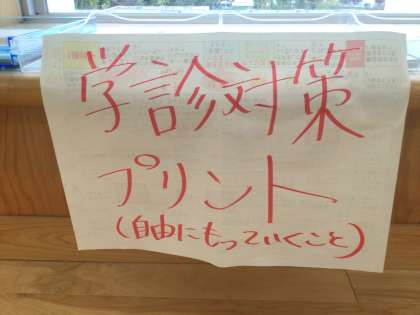 学診対策
プリント
(自由にもっていくこと)